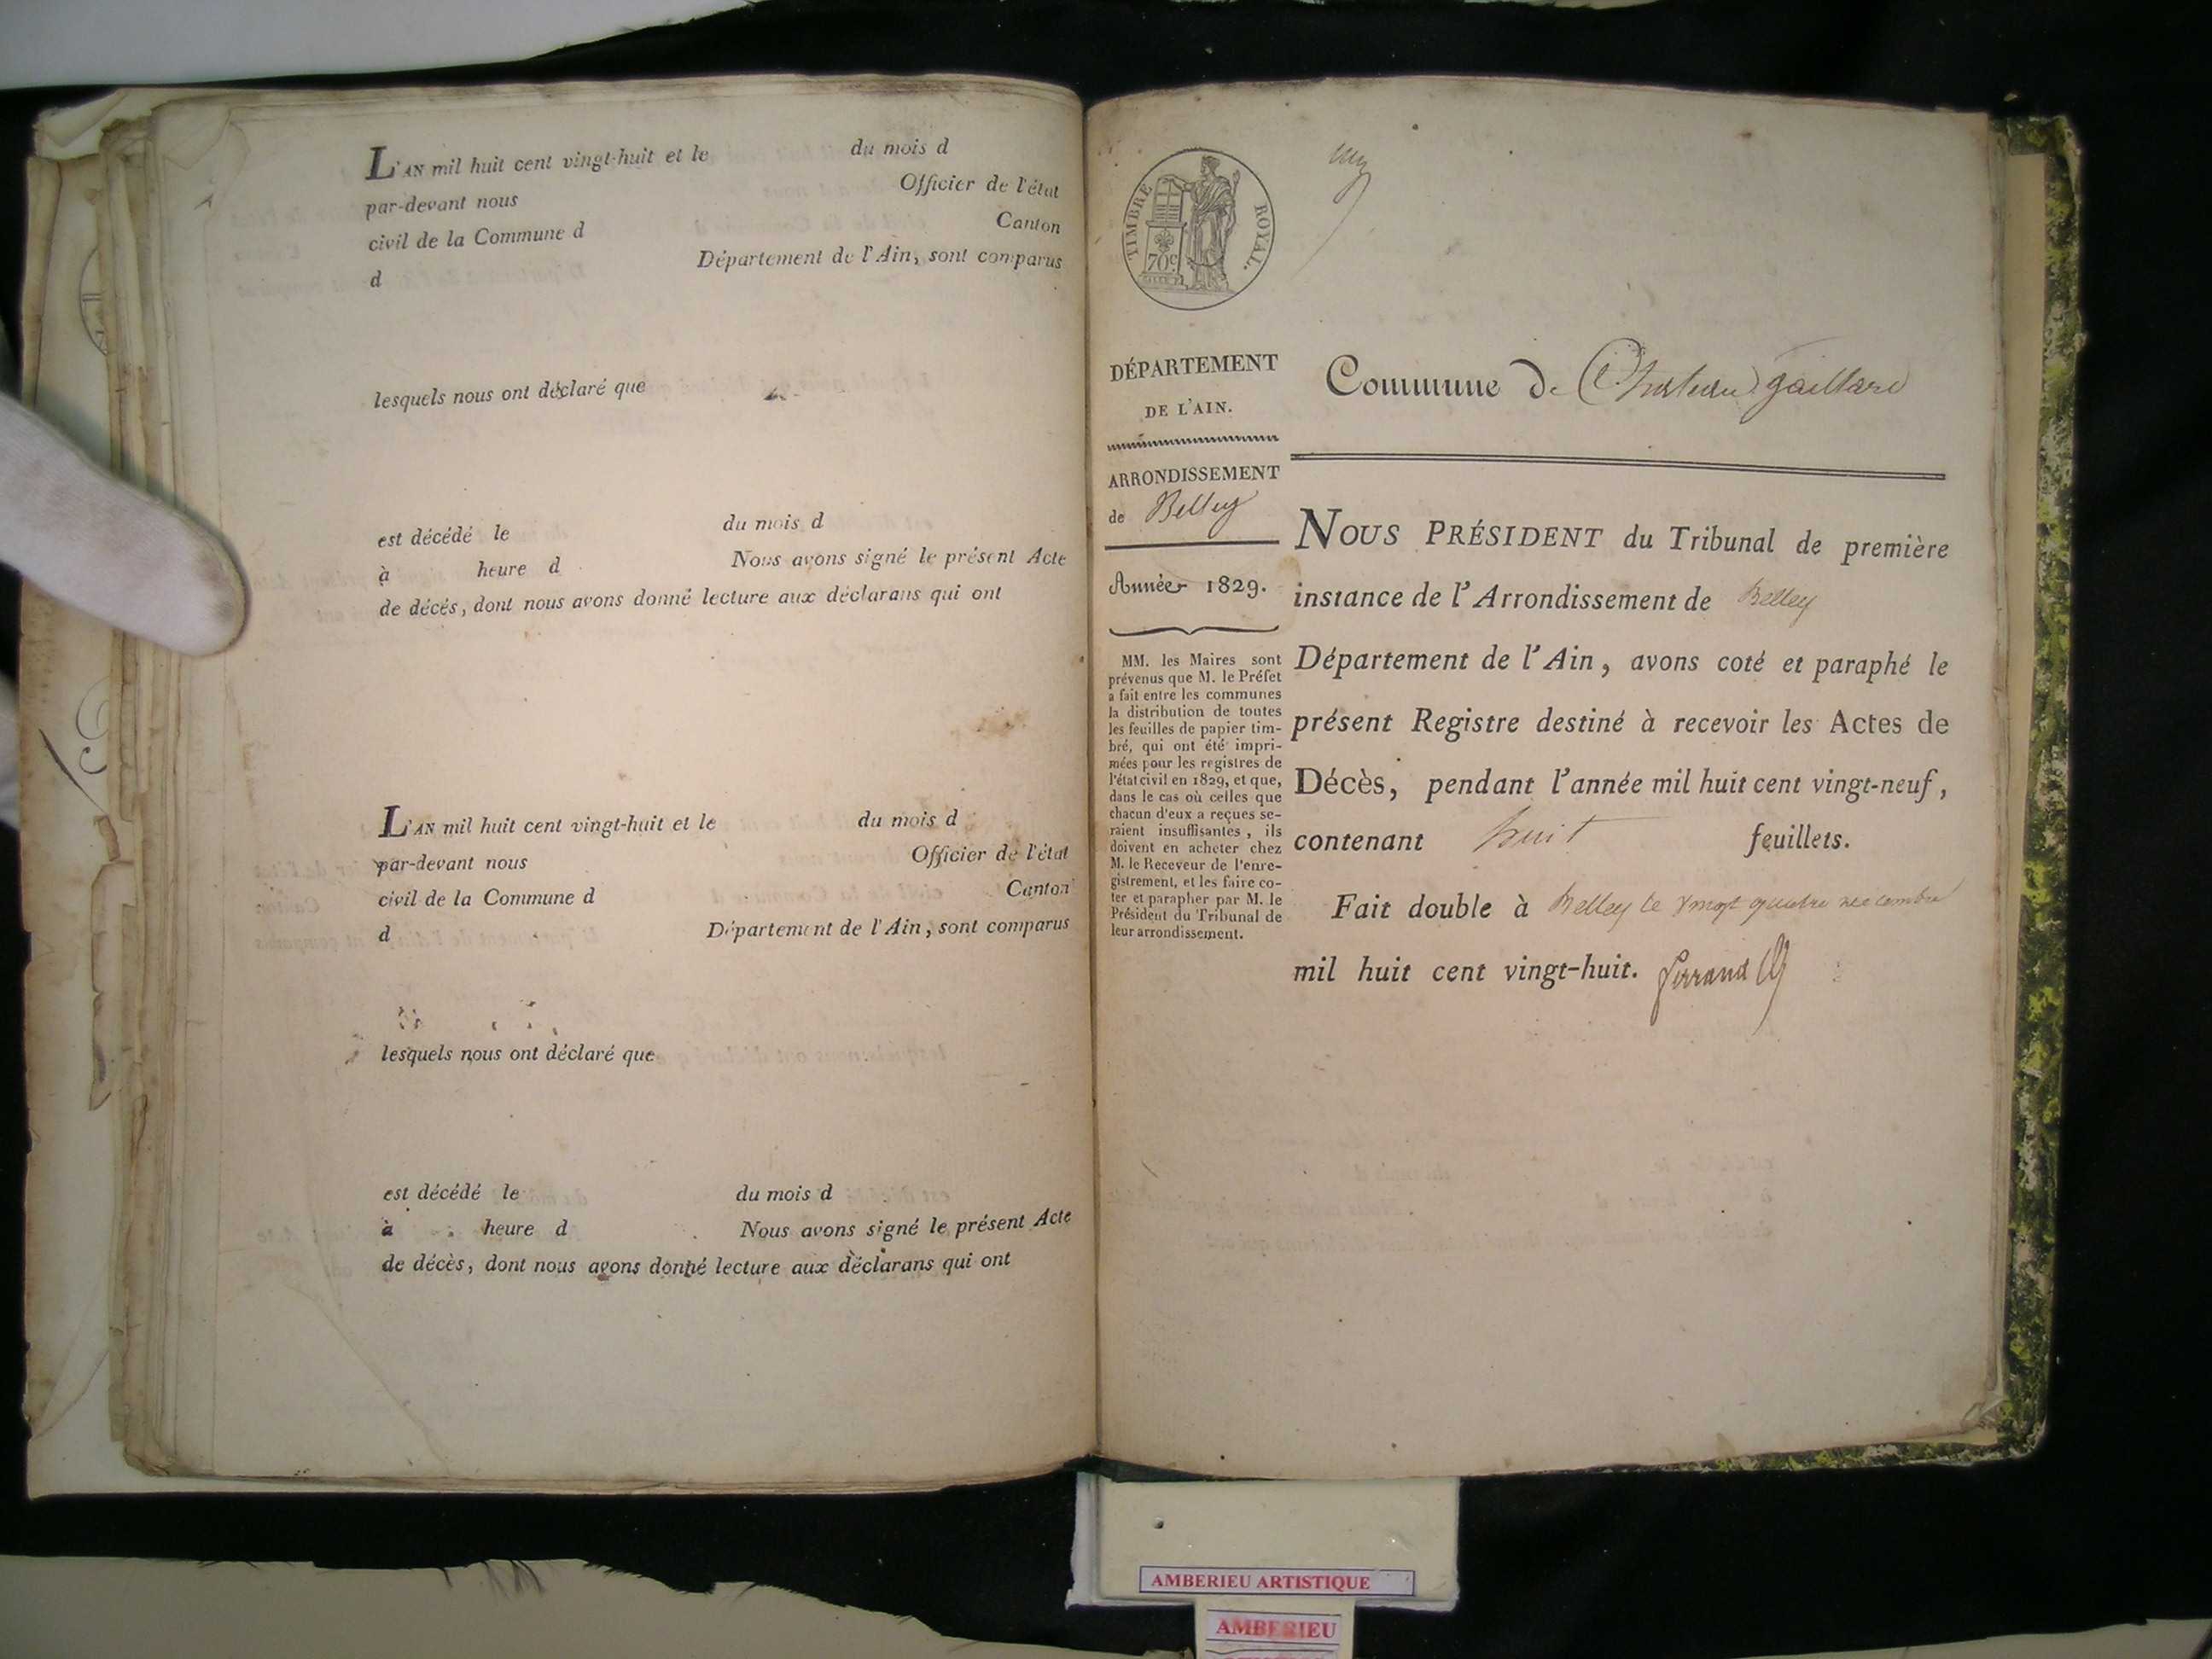 L'AN mil huit cent vingt-huit et le du mois d
par-devant nous Officier de l'état
civil de la Commune d Canton
d Département de l'Ain, sont comparus
lesquels nous ont déclaré que
est décédé le du mois d
à heure d Nous avons signé le présent Acte
de décès, dont nous avons donné lecture aux déclarans qui ont
L'AN mil huit cent vingt-huit et le du mois d
par-devant nous Officier de l'état
civil de la Commune d Canton
d Département de l'Ain, sont comparus
lesquels nous ont déclaré que
est décédé le du mois d
à heure d Nous avons signé le présent Acte
de décès, dont nous avons donné lecture aux déclarans qui ont
TIMBRE ROYAL.
70c
DÉPARTEMENT
DE L'AIN.
ARRONDISSEMENT
de Belley
Année 1829.
MM. les Maires sont
prévenus que M. le Préfet
a fait entre les communes
la distribution de toutes
les feuilles de papier tim-
bré, qui ont été impri-
mées pour les registres de
l'état civil en 1829, et que,
dans le cas où celles que
chacun d'eux a reçues se-
raient insuffisantes, ils
doivent en acheter chez
M. le Receveur de l'enre-
gistrement, et les faire co-
ter et parapher par M. le
Président du Tribunal de
leur arrondissement.
Commune de Chateau gaillard
NOUS PRÉSIDENT du Tribunal de première
instance de l'Arrondissement de Belley
Département de l'Ain, avons coté et paraphé le
présent Registre destiné à recevoir les Actes de
Décès, pendant l'année mil huit cent vingt-neuf,
contenant huit feuillets.
Fait double à Belley le vingt quatre decembre
mil huit cent vingt-huit.
AMBERIEU ARTISTIQUE
AMBERIEU